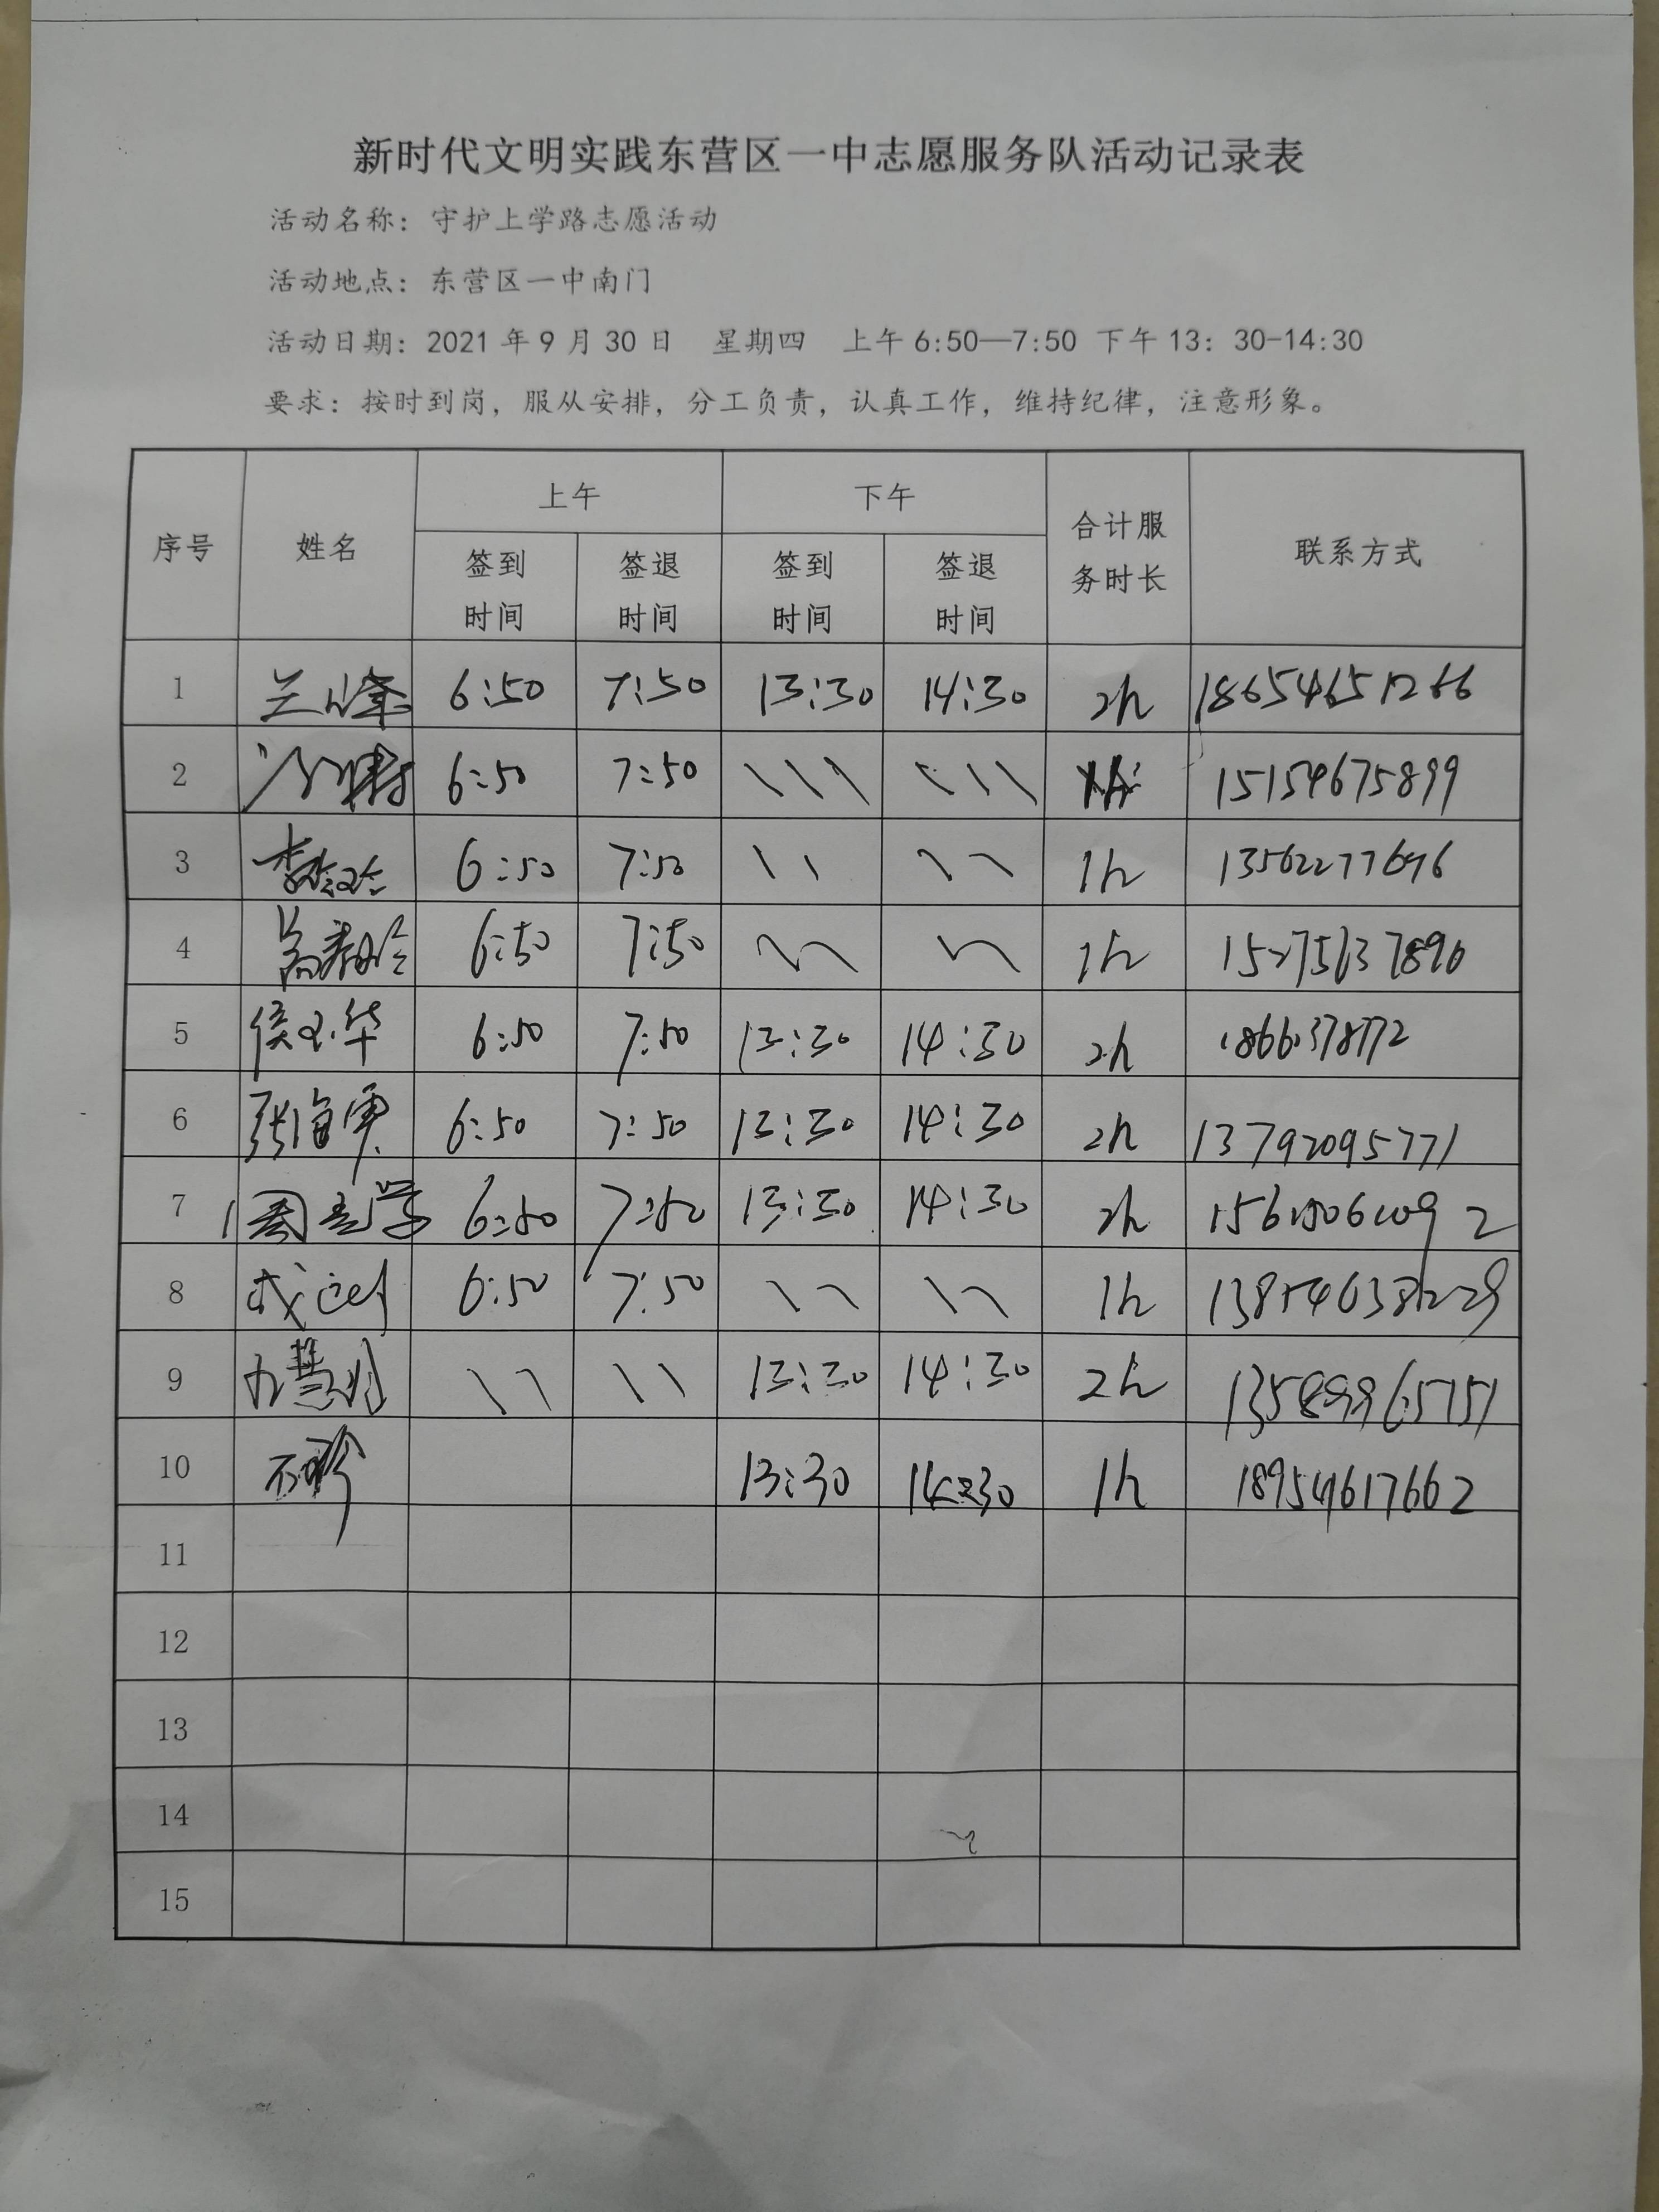 新时代文明实践东营区一中志愿服务队活动记录表
活动名称：守护上学路志愿活动
活动地点：东营区一中南门
活动日期：2021年9月30日 星期四 上午6:50—7:50 下午13：30-14:30
要求：按时到岗，服从安排，分工负责，认真工作，维持纪律，注意形象。
序号 姓名 上午 下午 合计服务时长 联系方式
签到时间 签退时间 签到时间 签退时间
1 6:50 7:50 13:30 14:30 2h 18654651266
2 6:50 7:50 15154675899
3 6:50 7:50 1h 13562277696
4 6:50 7:50 1h 15275637890
5 侯玉华 6:50 7:50 13:30 14:30 2h
6 张海军 6:50 7:50 13:30 14:30 2h 13792095771
7 6:50 7:50 13:30 14:30 2h
8 6:50 7:50 1h
9 13:30 14:30 2h 13589965751
10 13:30 14:30 1h 18954617662
11
12
13
14
15